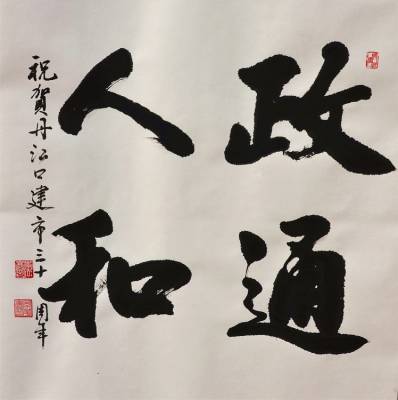 政通
人和
祝贺丹江口建市三十周年